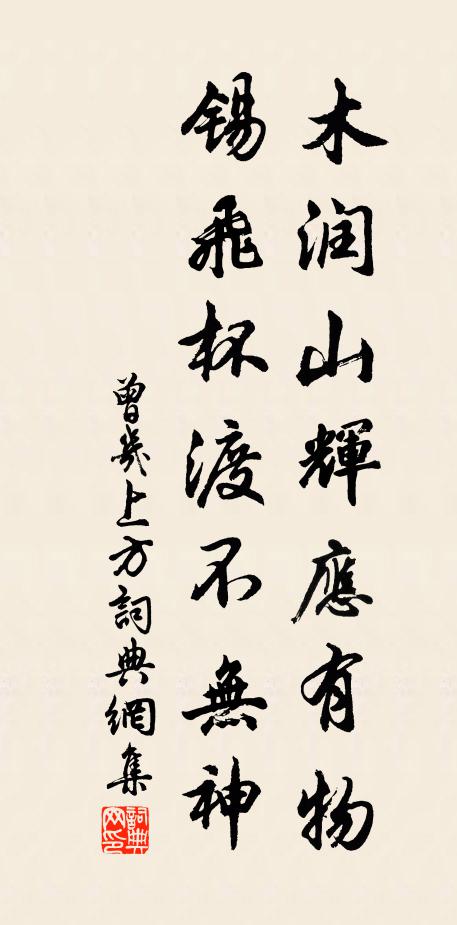 木润山輝應有物
錫飛杯渡不無神
曾幾上方詞典網集
詞典网印